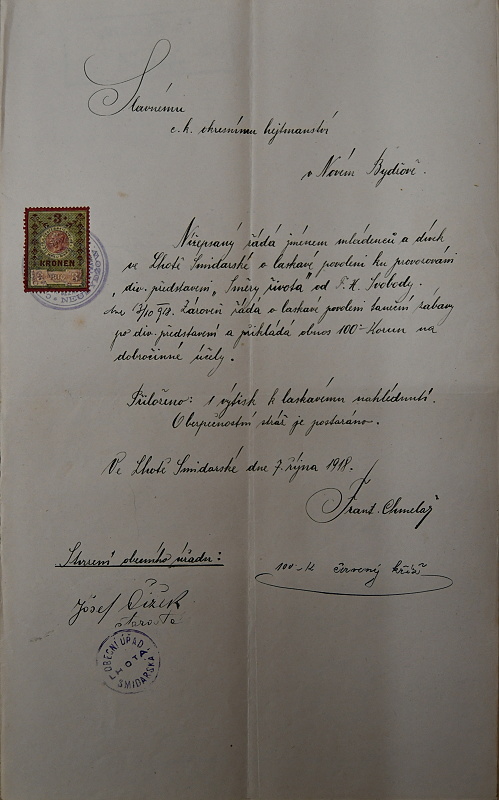 Slavnému
c. k. okresnímu hejtmanství
v Novém Bydžově.
3
KRONEN
NEU
Nížepsaný žádá jménem mládenců a dívek
ve Lhotě Smidarské o laskavé povolení ku provozování
„div. představení" Směry života od F. X. Svobody.
dne 13/10 1918. Zároveň žádá o laskavé povolení taneční zábavy
po div. představení a přikládá obnos 100- Korun na
dobročinné účely.
Přiloženo: 1 výtisk k laskavému nahlédnutí.
O bezpečnostní stráž je postaráno.
Ve Lhotě Smidarské dne 7. října 1918.
Frant. Chmelař
Stvrzení obecního úřadu:
100-K červený kříž
Josef Čížek
starosta
OBECNÍ ÚŘAD
LHOTA
SMIDARSKÁ